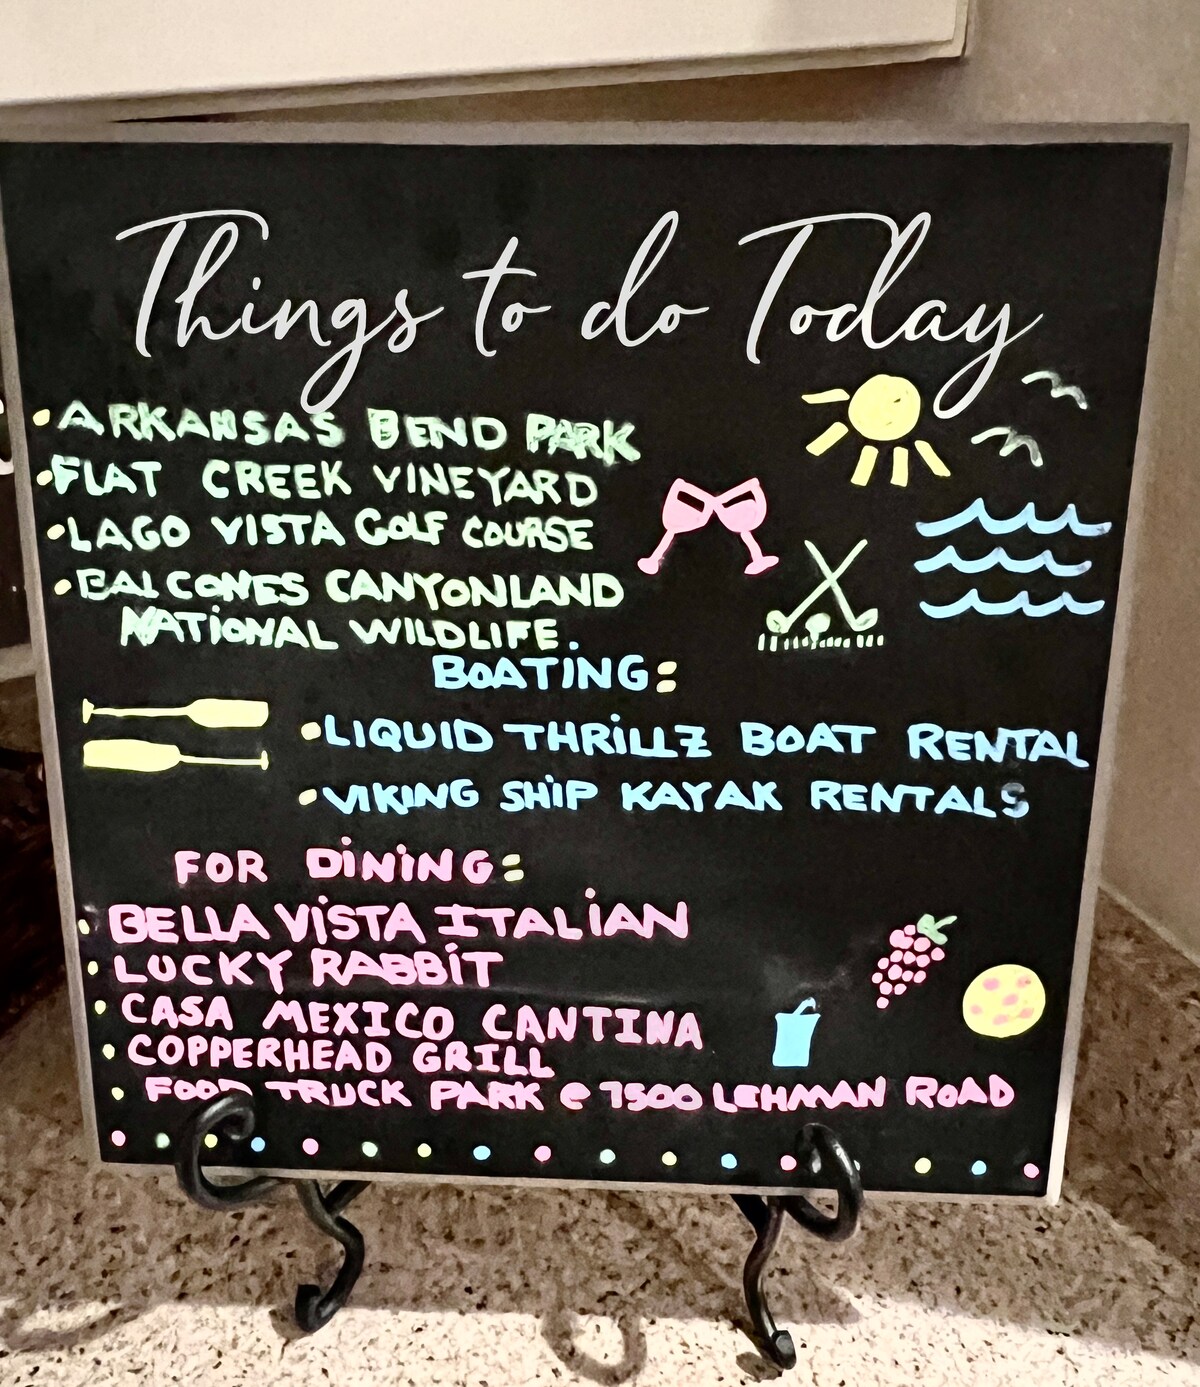 Things to do Today
• ARKANSAS BEND PARK
• FLAT CREEK VINEYARD
• LAGO VISTA GOLF COURSE
• BALCONES CANYONLAND
NATIONAL WILDLIFE.
BOATING:
• LIQUID THRILLZ BOAT RENTAL
• VIKING SHIP KAYAK RENTALS
FOR DINING:
• BELLA VISTA ITALIAN
• LUCKY RABBIT
• CASA MEXICO CANTINA
• COPPERHEAD GRILL
• FOOD TRUCK PARK @ 7500 LEHMAN ROAD